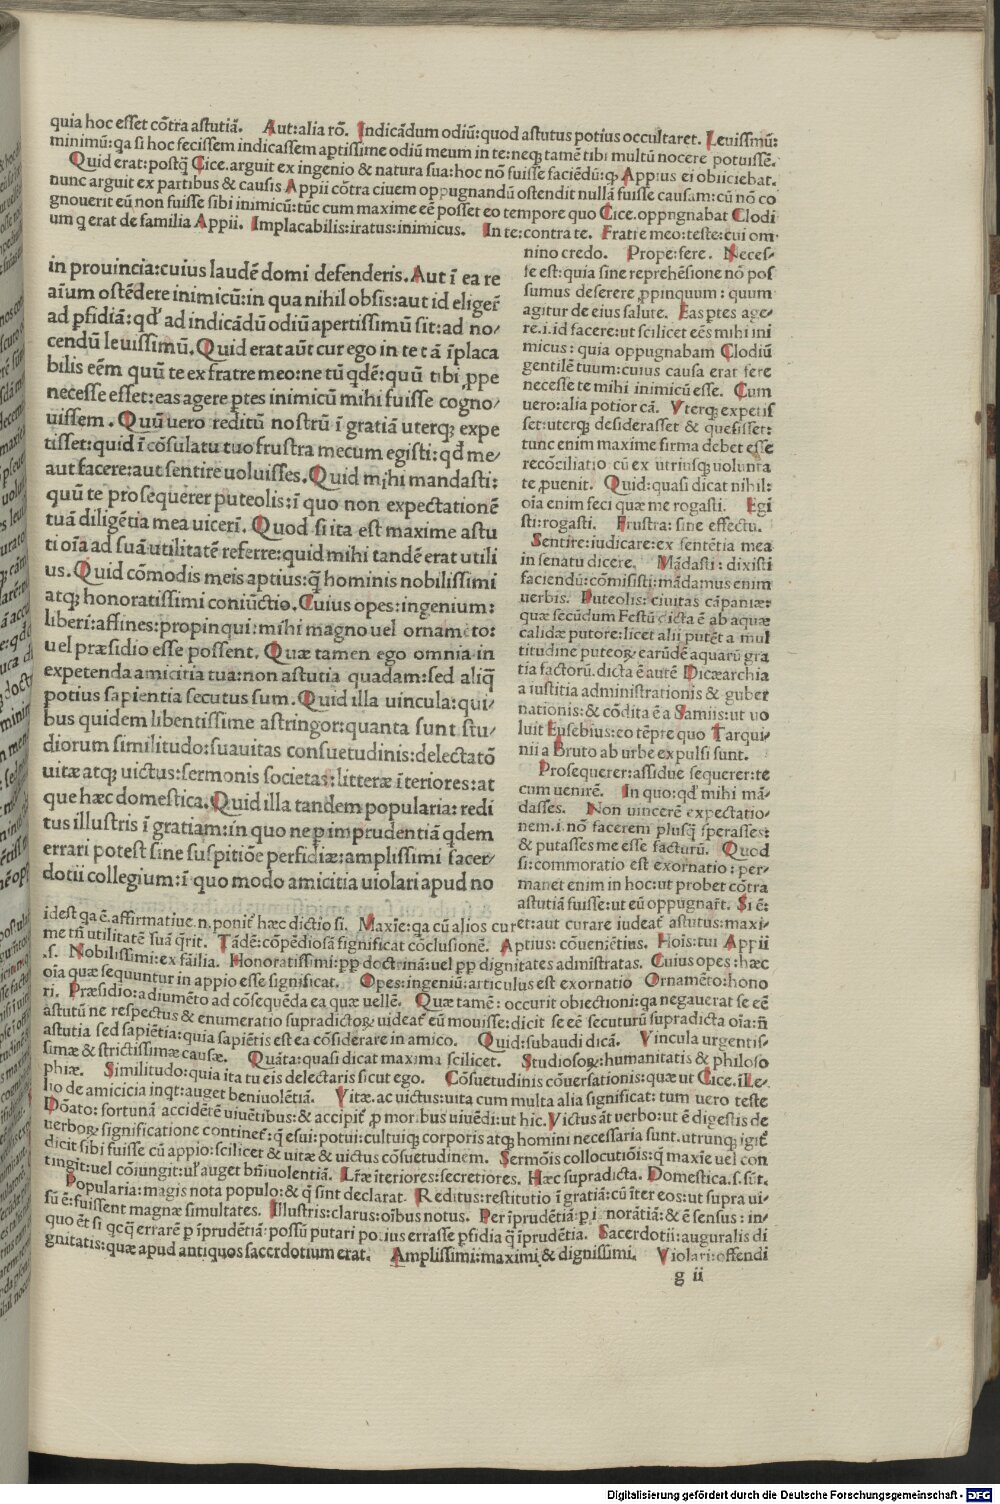 quia hoc esset cõtra astutiã. Aut:alia rõ. Indicãdum odiũ:quod astutus potius occultaret. Leuissimũ:
minimũ:qa si hoc fecissem indicassem aptissime odiũ meum in te:neqꝫ tamẽ tibi multũ nocere potuissẽ.
Quid erat:postq̃ Cice.arguit ex ingenio & natura sua:hoc nõ fuisse faciẽdũ:qꝫ Appius ei obiiciebat.
nunc arguit ex partibus & causis Appii cõtra ciuem oppugnandũ ostendit nullã fuisse causam:cũ nõ co
gnouerit eũ non fuisse sibi inimicũ:tũc cum maxime eẽ posset eo tempore quo Cice.oppngnabat Clodi
um q erat de familia Appii. Implacabilis:iratus:inimicus. In te:contra te. Fratre meo:teste:cui om⸗
nino credo. Prope:fere. Neces⸗
se est:quia sine reprehẽsione nõ pos
sumus deserere ꝓpinquum: quum
agitur de eius salute. Eas ptes age⸗
re.i.id facere:ut scilicet eẽs mihi ini
micus: quia oppugnabam Clodiũ
gentilẽ tuum:cuius causa erat fere
necesse te mihi inimicũ esse. Cum
uero:alia potior cã. Vterqꝫ expetis
set:uterqꝫ desiderasset & quesisset:
tunc enim maxime firma debet esse
recõciliatio cũ ex utriusqꝫ uolunta
te ꝓuenit. Quid:quasi dicat nihil:
oĩa enim feci quæ me rogasti. Egi
sti:rogasti. Frustra: sine effectu.
Sentire:iudicare:ex sentẽtia mea
in senatu dicere. Mãdasti: dixisti
faciendũ:cõmisisti:mãdamus enim
uerbis. Puteolis: ciuitas cãpaniæ:
quæ secũdum Festũ dicta ẽ ab aquæ
calidæ putore:licet alii putẽt a mul
titudine puteoꝝ earũdẽ aquarũ gra
tia factorũ.dicta ẽ autẽ Dicæarchia
a iustitia administrationis & guber
nationis:& cõdita ẽ a Samiis:ut uo
luit Eusebius:eo tẽpre quo Tarqui⸗
nii a Bruto ab urbe expulsi sunt.
Prosequerer:assidue sequerer:te
cum uenirẽ. In quo:qđ mihi mã⸗
dasses. Non uincerẽ expectatio⸗
nem.i.nõ facerem plusq̃ sperasses:
& putasses me esse facturũ. Quod
si:commoratio est exornatio: per⸗
manet enim in hoc:ut probet cõtra
astutiã fuisse:ut eũ oppugnaret. Si ẽ:
in prouincia:cuius laudẽ domi defenderis.Aut ĩ ea re
aĩum ostẽdere inimicũ:in qua nihil obsis:aut id eligeꝛ̃
ad ꝑfidiã:qđ ad indicãdũ odiũ apertissimũ sit:ad no⸗
cendũ leuissimũ.Quid erat aũt cur ego in te tã ĩplaca
bilis eẽm quũ te ex fratre meo:ne tũ qdẽ:quũ tibi ꝓpe
necesse esset:eas agere ꝑtes inimicũ mihi fuisse cogno⸗
uissem. Quũ uero reditũ nostrũ ĩ gratiã uterqꝫ expe
tisset:quid ĩ cõsulatu tuo frustra mecum egisti:qđ me⸗
aut facere:aut sentire uoluisses.Quid mihi mandasti:
quũ te prosequerer puteolis:ĩ quo non expectationẽ
tuã diligẽtia mea uicerĩ. Quod si ita est maxime astu
ti oĩa ad suã utilitatẽ referre:quid mihi tandẽ erat utili
us.Quid cõmodis meis aptius:q̃ hominis nobilissimi
atqꝫ honoratissimi coniũctio.Cuius opes:ingenium:
liberi:affines:propinqui:mihi magno uel ornamẽto:
uel præsidio esse possent. Quæ tamen ego omnia in
expetenda amicitia tua:non astutia quadam:sed aliq̃
potius sapientia secutus sum. Quid illa uincula:qui⸗
bus quidem libentissime astringor:quanta sunt stu⸗
diorum similitudo:suauitas consuetudinis:delectatõ
uitæ atqꝫ uictus:sermonis societas:litteræ ĩteriores:at
que hæc domestica.Quid illa tandem popularia:redi
tus illustris ĩ gratiam:in quo ne ꝑ imprudentiã qdem
errari potest sine suspitiõe perfidiæ:amplissimi sacer⸗
dotii collegium:ĩ quo modo amicitia uiolari apud no
idest qa ẽ.affirmatiue.n.ponit̃ hæc dictio si. Maxĩe:qa cũ alios curet:aut curare iudeat̃ astutus:maxi⸗
me tñ utilitatẽ suã q̃rit. Tãdẽ:cõpẽdiosã significat cõclusionẽ. Aptius: cõueniẽtius. Hoĩs:tui Appii
.s. Nobilissimi:ex fãilia. Honoratissimi:ꝓp doctrinã:uel ꝓp dignitates admĩstratas. Cuius opes:hæc
oĩa quæ sequuntur in appio esse significat. Opes:ingeniũ:articulus est exornatio Ornamẽto:hono
ri. Præsidio:adiumẽto ad cõsequẽda ea quæ uellẽ. Quæ tamẽ: occurit obiectioni:qa negauerat se eẽ
astutũ ne respectus & enumeratio supradictoꝝ uideat̃ eũ mouisse:dicit se eẽ secuturũ supradicta oĩa:ñ
astutia sed sapiẽtia:quia sapiẽtis est ea cõsiderare in amico. Quid:subaudi dicã. Vincula urgentis⸗
simæ & strictissimæ causæ. Quãta:quasi dicat maxima scilicet. Studiosoꝝ:humanitatis & philoso
phiæ. Similitudo:quia ita tu eis delectaris sicut ego. Cõsuetudinis cõuersationis:quæ ut Cice.ĩ Le⸗
lio de amicicia inqt:auget beniuolẽtiã. Vitæ.ac uictus:uita cum multa alia significat: tum uero teste
Dõato: fortunã accidẽtẽ uiuẽtibus:& accipit̃ ꝓ moribus uiuẽdi:ut hic.Victus aũt uerbo:ut ẽ digestis de
uerboꝝ significatione continet̃:q̃ esui:potui:cultuiqꝫ corporis atqꝫ homini necessaria sunt.utrunqꝫ igit̃
dicit sibi fuisse cũ appio:scilicet & uitæ & uictus cõsuetudinem. Sermõis collocutiõis:q̃ maxĩe uel con
tingit:uel cõiungit:ul' auget bñiuolentiã. Lr̃æ ĩteriores:secretiores. Hæc supradicta. Domestica.s.sũt.
Popularia:magis nota populo:& q̃ sint declarat. Reditus:restitutio ĩ gratiã:cũ ĩter eos:ut supra ui⸗
sũ ẽ:fuissent magnæ simultates. Illustris:clarus:oĩbus notus. Per ĩprudẽtiã:ꝑ i norãtiã:& ẽ sensus: in⸗
quo ẽt si qcq̃ errarẽ ꝑ ĩprudẽtiã:possũ putari potius errasse ꝑfidia q̃ ĩprudẽtia. Sacerdotii:auguralis di
gnitatis:quæ apud antiquos sacerdotium erat. Amplissimi:maximi & dignissimi. Violari:offendi
g ii
Digitalisierung gefördert durch die Deutsche Forschungsgemeinschaft - DFG